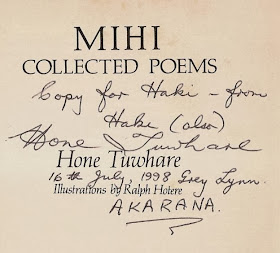 MIHI
COLLECTED POEMS
Copy for Haki - from
Haki (also)
Hone Tuwhare
Hone Tuwhare
16th July, 1998 Grey Lynn.
Illustrations by Ralph Hotere
AKARANA.